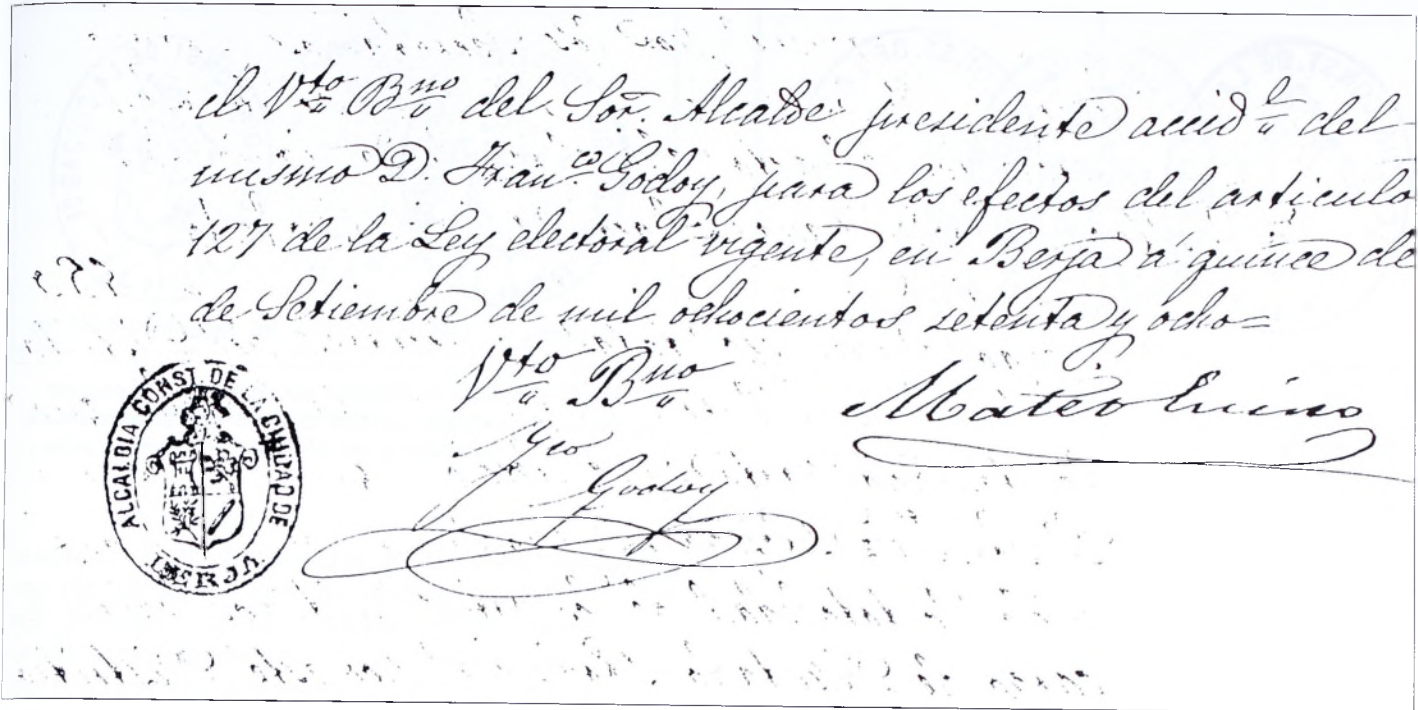 el Vto Bno del Sor. Alcalde presidente accidl del
mismo D. Franco Godoy, para los efectos del articulo
127 de la Ley electoral vigente, en Berja á quince de
de Setiembre de mil ochocientos setenta y ocho=
Vto Bno
Mateo
Fco
Godoy
ALCALDIA CONST. DE LA CIUDAD DE
BERJA